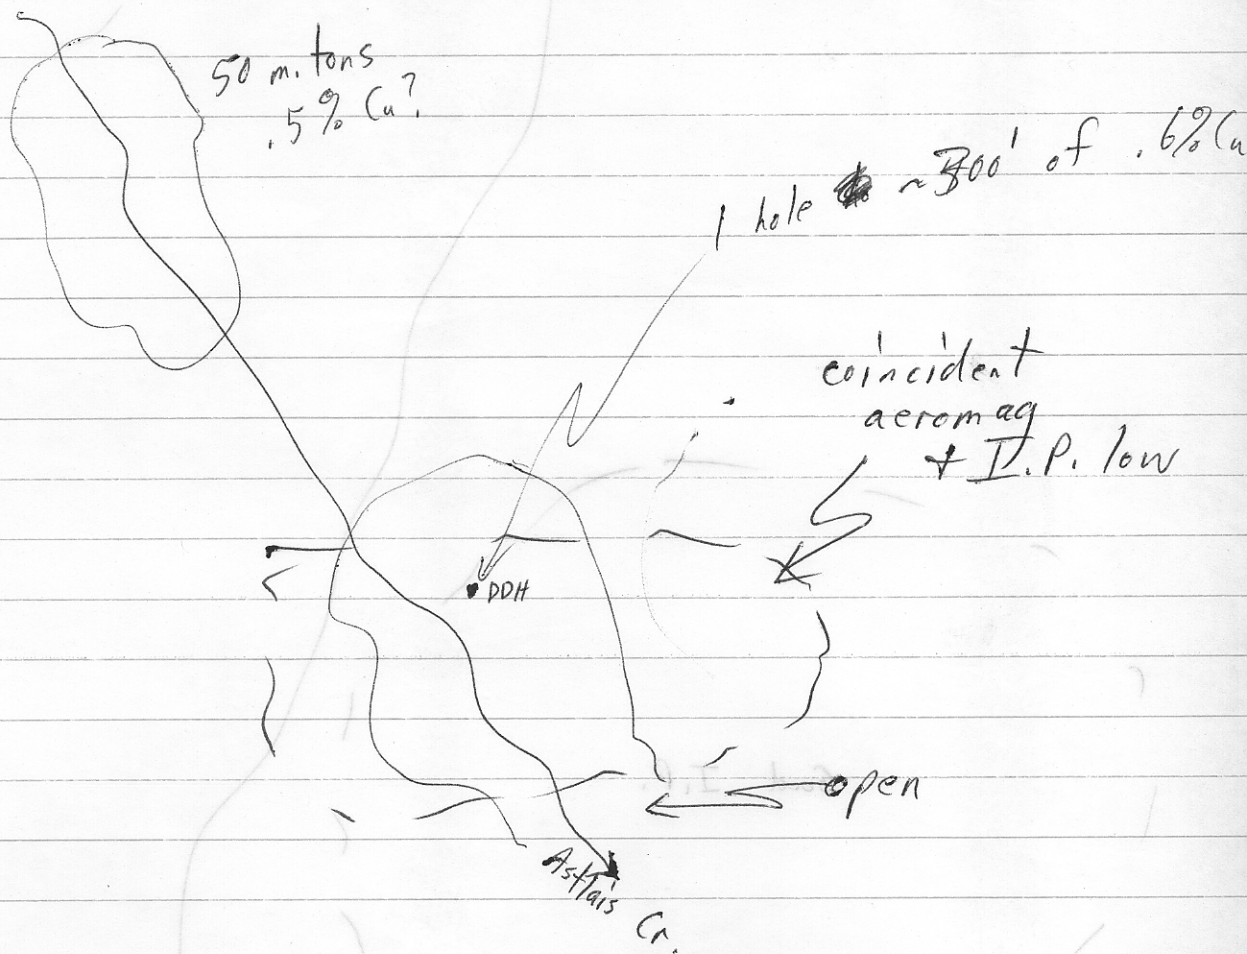 50 m. tons
.5% Cu?
1 hole ~300' of .6% Cu
coincident
aeromag
+ I.P. low
DDH
open
Cr.